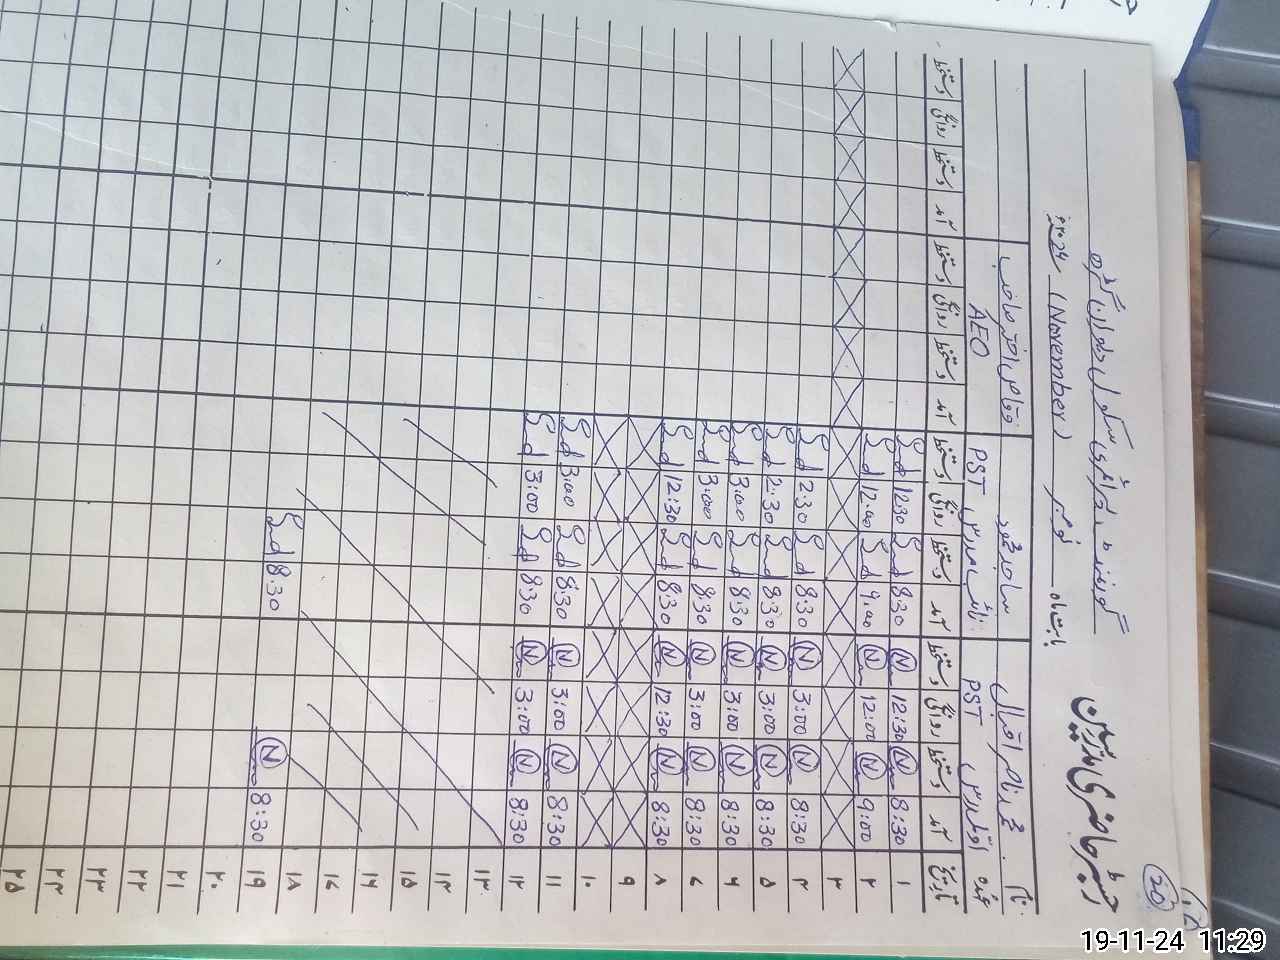 20
رجسٹر حاضری مدرسین
گورنمنٹ پرائمری سکول
بابت ماہ نومبر (November) 2024ء
نام محمد ناصر اقبال ساجد محمود
عہدہ PST PST AEO
تاریخ آمد دستخط روانگی دستخط آمد دستخط روانگی دستخط آمد دستخط روانگی دستخط آمد دستخط روانگی دستخط
۱ 8:30 N 12:30 N 8:30 12:30
۲ 9:00 N 12:00 N 9:00 12:00
۳
۴ 8:30 N 3:00 N 8:30 2:30
۵ 8:30 N 3:00 N 8:30 2:30
۶ 8:30 N 3:00 N 8:30 3:00
۷ 8:30 N 3:00 N 8:30 3:00
۸ 8:30 N 12:30 N 8:30 12:30
۹
۱۰
۱۱ 8:30 N 3:00 N 8:30 3:00
۱۲ 8:30 N 3:00 N 8:30 3:00
۱۳
۱۴
۱۵
۱۶
۱۷
۱۸
۱۹ 8:30 N 8:30
۲۰
۲۱
۲۲
۲۳
۲۴
۲۵
19-11-24 11:29